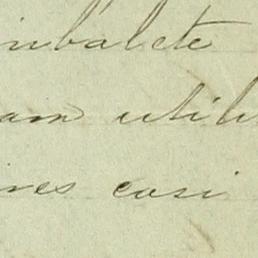 inbalete
am utili
ines casi